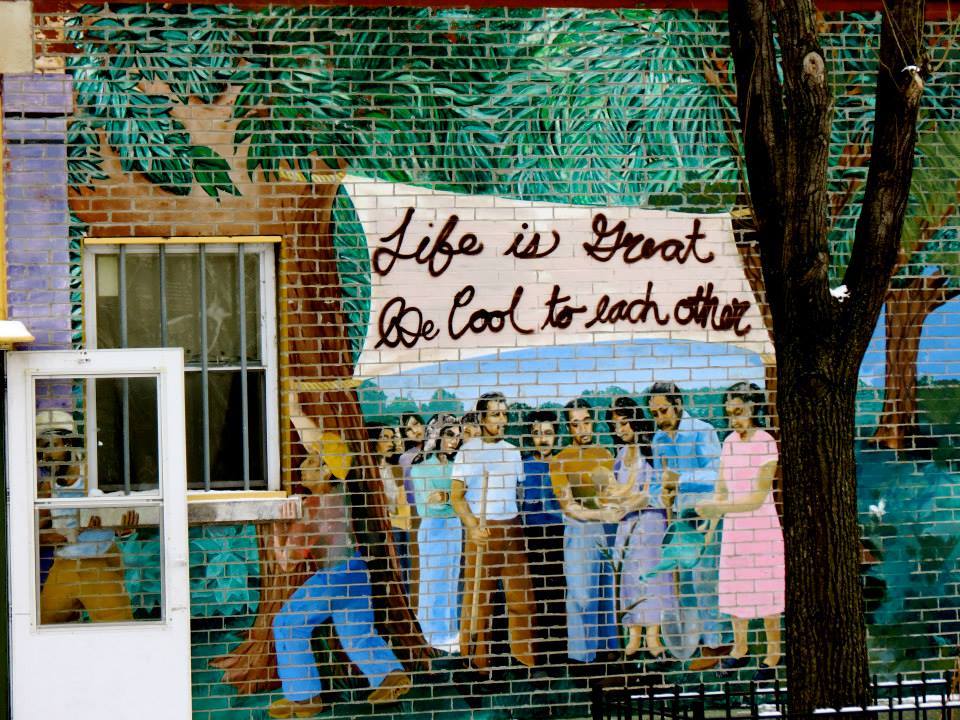 Life is Great
Be Cool to each other